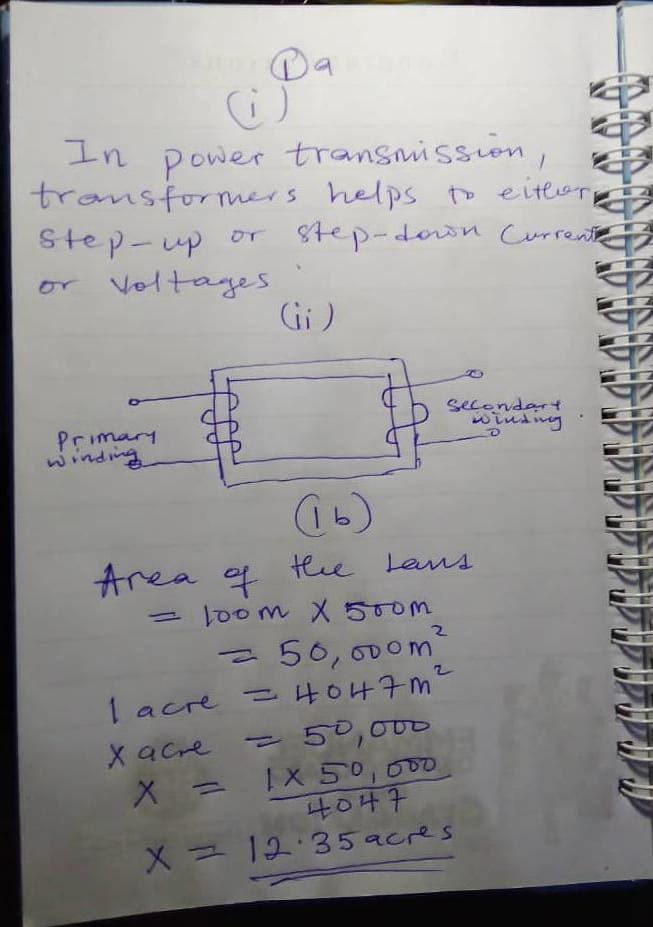 1a
(i)
In power transmission,
transformers helps to either
step-up or step-down current
or voltages
(ii)
Primary
winding
Secondary
winding.
(1b)
Area of the land
= 100m X 500m
= 50,000m²
1 acre = 4047m²
X acre = 50,000
X = 1 X 50,000
4047
X = 12.35 acres